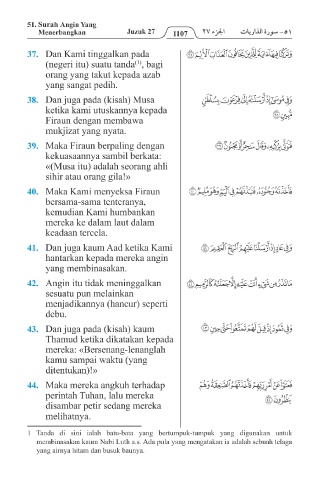 51. Surah Angin Yang
Menerbangkan
Juzuk 27
1107
الجزء ٢٧
٥١ - سورة الذاريات
37. Dan Kami tinggalkan pada
(negeri itu) suatu tanda(1), bagi
orang yang takut kepada azab
yang sangat pedih.
وَتَرَكْنَا فِيهَآ ءَايَةً لِّلَّذِينَ يَخَافُونَ ٱلْعَذَابَ ٱلْأَلِيمَ ۝٣٧
38. Dan juga pada (kisah) Musa
ketika kami utuskannya kepada
Firaun dengan membawa
mukjizat yang nyata.
وَفِى مُوسَىٰٓ إِذْ أَرْسَلْنَٰهُ إِلَىٰ فِرْعَوْنَ بِسُلْطَٰنٍ
مُّبِينٍ ۝٣٨
39. Maka Firaun berpaling dengan
kekuasaannya sambil berkata:
«(Musa itu) adalah seorang ahli
sihir atau orang gila!»
فَتَوَلَّىٰ بِرُكْنِهِۦ وَقَالَ سَٰحِرٌ أَوْ مَجْنُونٌ ۝٣٩
40. Maka Kami menyeksa Firaun
bersama-sama tenteranya,
kemudian Kami humbankan
mereka ke dalam laut dalam
keadaan tercela.
فَأَخَذْنَٰهُ وَجُنُودَهُۥ فَنَبَذْنَٰهُمْ فِى ٱلْيَمِّ وَهُوَ مُلِيمٌ ۝٤٠
41. Dan juga kaum Aad ketika Kami
hantarkan kepada mereka angin
yang membinasakan.
وَفِى عَادٍ إِذْ أَرْسَلْنَا عَلَيْهِمُ ٱلرِّيحَ ٱلْعَقِيمَ ۝٤١
42. Angin itu tidak meninggalkan
sesuatu pun melainkan
menjadikannya (hancur) seperti
debu.
مَا تَذَرُ مِن شَىْءٍ أَتَتْ عَلَيْهِ إِلَّا جَعَلَتْهُ كَٱلرَّمِيمِ ۝٤٢
43. Dan juga pada (kisah) kaum
Thamud ketika dikatakan kepada
mereka: «Bersenang-lenanglah
kamu sampai waktu (yang
ditentukan)!»
وَفِى ثَمُودَ إِذْ قِيلَ لَهُمْ تَمَتَّعُوا۟ حَتَّىٰ حِينٍ ۝٤٣
44. Maka mereka angkuh terhadap
perintah Tuhan, lalu mereka
disambar petir sedang mereka
melihatnya.
فَعَتَوْا۟ عَنْ أَمْرِ رَبِّهِمْ فَأَخَذَتْهُمُ ٱلصَّٰعِقَةُ وَهُمْ
يَنظُرُونَ ۝٤٤
1 Tanda di sini ialah batu-bata yang bertumpuk-tumpuk yang digunakan untuk
membinasakan kaum Nabi Luth a.s. Ada pula yang mengatakan ia adalah sebuah telaga
yang airnya hitam dan busuk baunya.